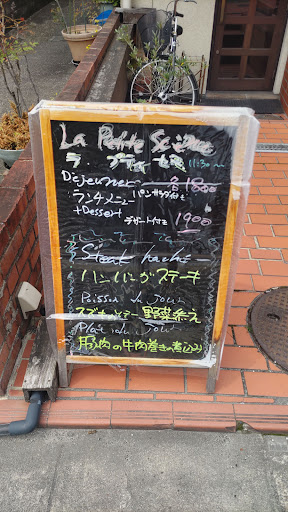 La Petite
ラ・プティット 11:30〜
Déjeuner 各1800
ランチメニュー パン・サラダ付き
+Dessert デザート付き 1900
Steak haché
ハンバーグステーキ
Poisson du jour
スズキ 野菜添え
Plat du jour
豚肉の牛肉巻き煮込み